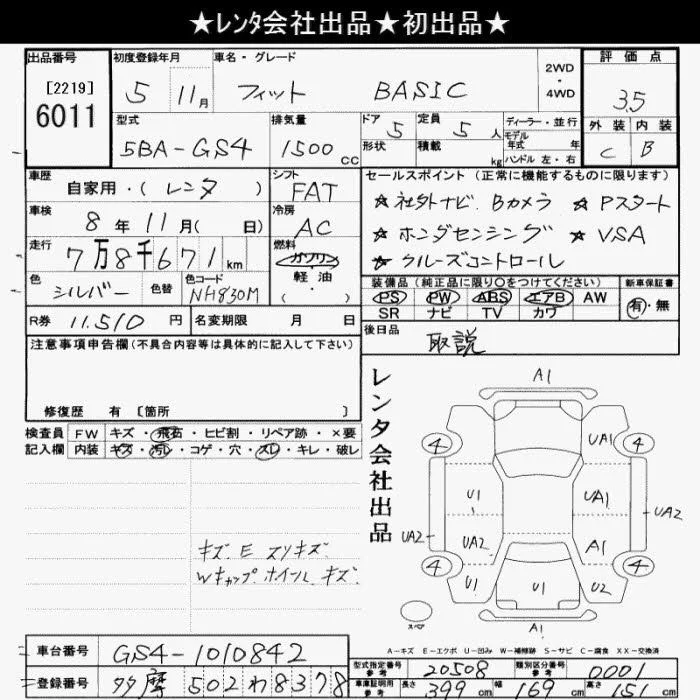 ★レンタ会社出品★初出品★
出品番号
[2219]
6011
初度登録年月
5 11月
車名・グレード
フィット BASIC
2WD
・
4WD
評価点
3.5
外装 内装
C B
型式
5BA-GS4
排気量
1500cc
ドア 5
形状
定員 5人
積載 kg
ディーラー・並行
モデル
年式 年
ハンドル 左・右
車歴
自家用・(レンタ)
シフト
FAT
車検
8年11月( 日)
冷房
AC
走行
7万8千671km
燃料
ガソリン
軽・油
( )
色
シルバー
色替
色コード
NH830M
セールスポイント(正常に機能するものに限ります)
★社外ナビ. Bカメラ ★Pスタート
★ホンダセンシング ★VSA
★クルーズコントロール
装備品(純正品に限り○をつけてください)
PS PW ABS エアB AW
SR ナビ TV カワ
新車保証書
有・無
R券 11.510円
名変期限 月 日
後日品
取説
注意事項申告欄(不具合内容等は具体的に記入して下さい)
修復歴 有 [箇所 ]
検査員
記入欄
FW キズ・飛石・ヒビ割・リペア跡・×要
内装 キズ・汚レ・コゲ・穴・スレ・キレ・破レ
キズ. E スリキズ
Wキャップ ホイール キズ
レンタ会社出品
A1
4
UA1
4
U1
UA1
UA2
UA2
UA2
A1
4
4
U1
U1
U2
スペア
A1
A-キズ E-エクボ U-凹み W-補修跡 S-サビ C-腐食 XX-交換済
車台番号
GS4-1010842
登録番号
多摩 502わ8378
型式指定番号
参考
20508
類別区分番号
参考
0001
車庫証明用
参考
長さ 399cm
幅 169cm
高さ 151cm